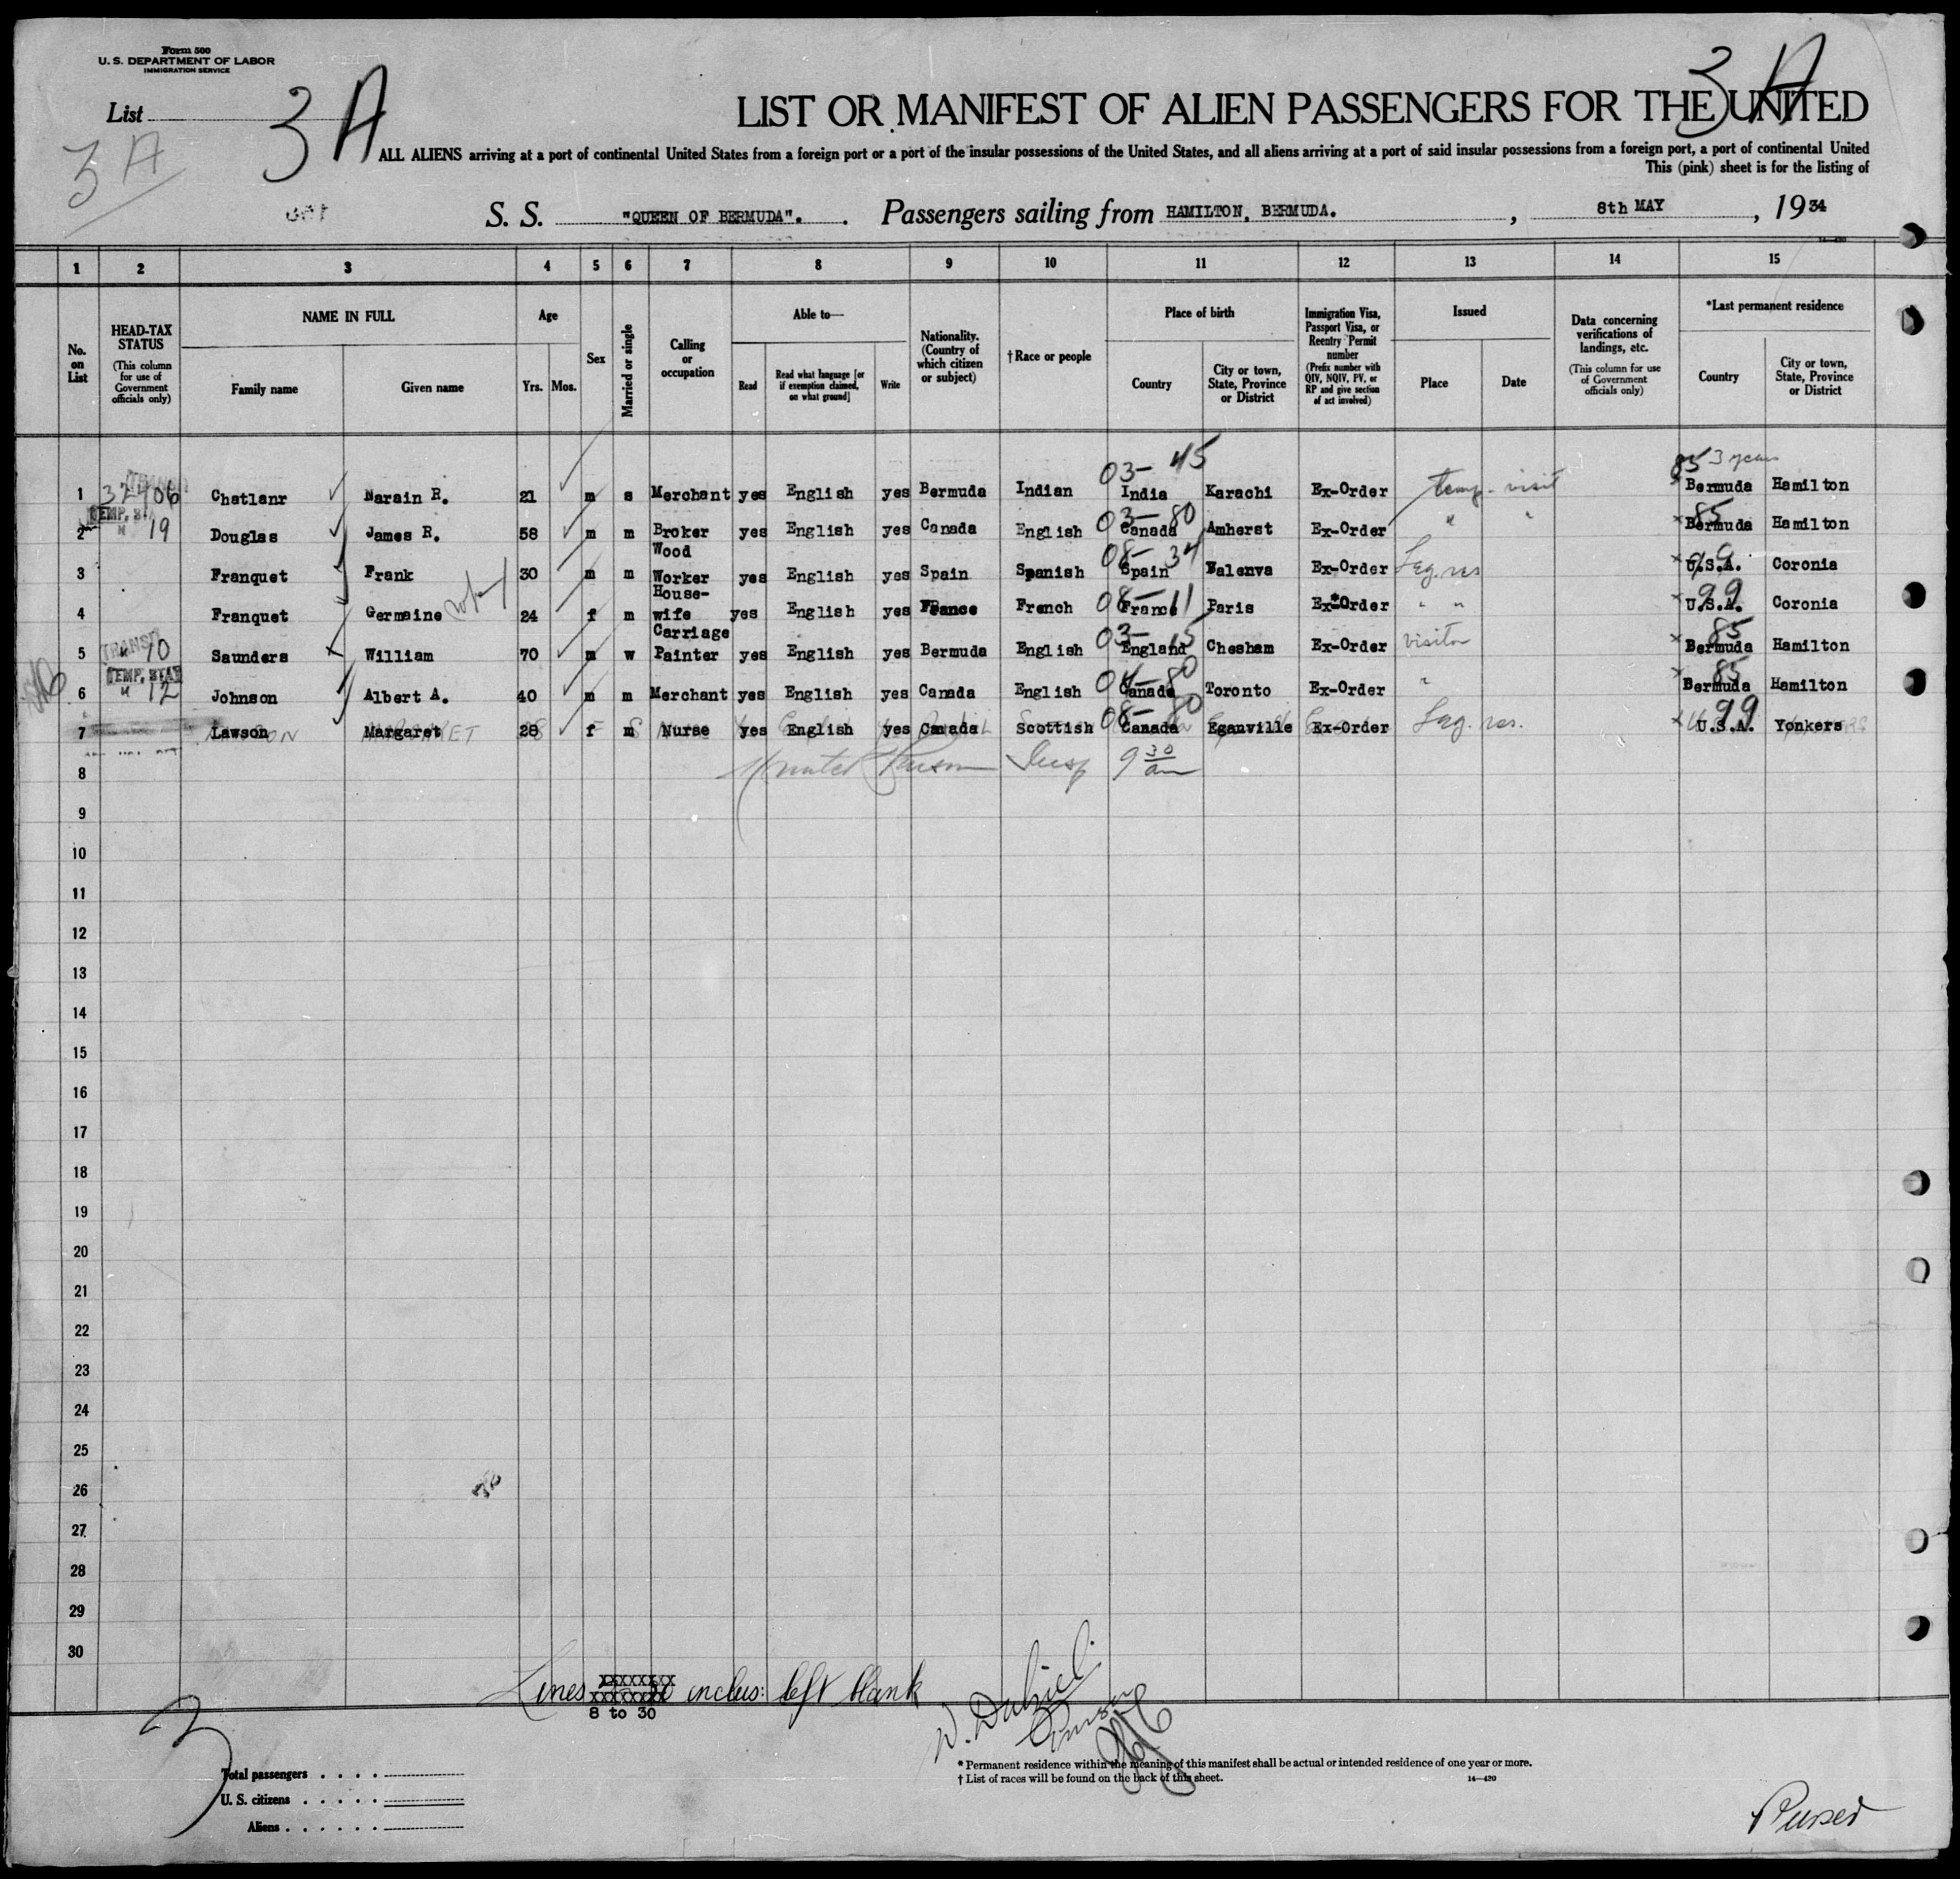 Form 500
U. S. DEPARTMENT OF LABOR
IMMIGRATION SERVICE
List
3 A
3 A
3 A
LIST OR MANIFEST OF ALIEN PASSENGERS FOR THE UNITED
ALL ALIENS arriving at a port of continental United States from a foreign port or a port of the insular possessions of the United States, and all aliens arriving at a port of said insular possessions from a foreign port, a port of continental United
This (pink) sheet is for the listing of
S. S. "QUEEN OF BERMUDA". Passengers sailing from HAMILTON, BERMUDA. , 8th MAY , 1934
1 2 3 4 5 6 7 8 9 10 11 12 13 14 15
No. on List
HEAD-TAX STATUS (This column for use of Government officials only)
NAME IN FULL
Family name Given name
Age
Yrs. Mos.
Sex
Married or single
Calling or occupation
Able to—
Read Read what language [or if exemption claimed, on what ground] Write
Nationality. (Country of which citizen or subject)
†Race or people
Place of birth
Country City or town, State, Province or District
Immigration Visa, Passport Visa, or Reentry Permit number (Prefix number with QIV, NQIV, PV, or RP and give section of act involved)
Issued
Place Date
Data concerning verifications of landings, etc. (This column for use of Government officials only)
*Last permanent residence
Country City or town, State, Province or District
03- 45 85 3 years
1 Chatlanr Narain R. 21 m s Merchant yes English yes Bermuda Indian India Karachi Ex-Order temp. visit Bermuda Hamilton
03-80 85
2 19 Douglas James R. 58 m m Broker yes English yes Canada English Canada Amherst Ex-Order " " Bermuda Hamilton
08- 34 99
3 Franquet Frank 30 m m Wood Worker yes English yes Spain Spanish Spain Valenva Ex-Order Leg. res U.S.A. Coronia
08-11 99
4 Franquet Germaine wife 24 f m House-wife yes English yes France French France Paris Ex-Order " " U.S.A. Coronia
03-15 85
5 10 Saunders William 70 m w Carriage Painter yes English yes Bermuda English England Chesham Ex-Order visitor Bermuda Hamilton
TEMP. 04-80 85
6 " 12 Johnson Albert A. 40 m m Merchant yes English yes Canada English Canada Toronto Ex-Order " Bermuda Hamilton
08-80 99
7 Lawson Margaret 28 f m Nurse yes English yes Canada Scottish Canada Eganville Ex-Order Leg. res. U.S.A. Yonkers
Insp 9 30 am
8
9
10
11
12
13
14
15
16
17
18
19
20
21
22
23
24
25
26
27
28
29
30
Lines inclus: left blank
8 to 30
3
Total passengers
U. S. citizens
Aliens
* Permanent residence within the meaning of this manifest shall be actual or intended residence of one year or more.
† List of races will be found on the back of this sheet.
14—420
Purser